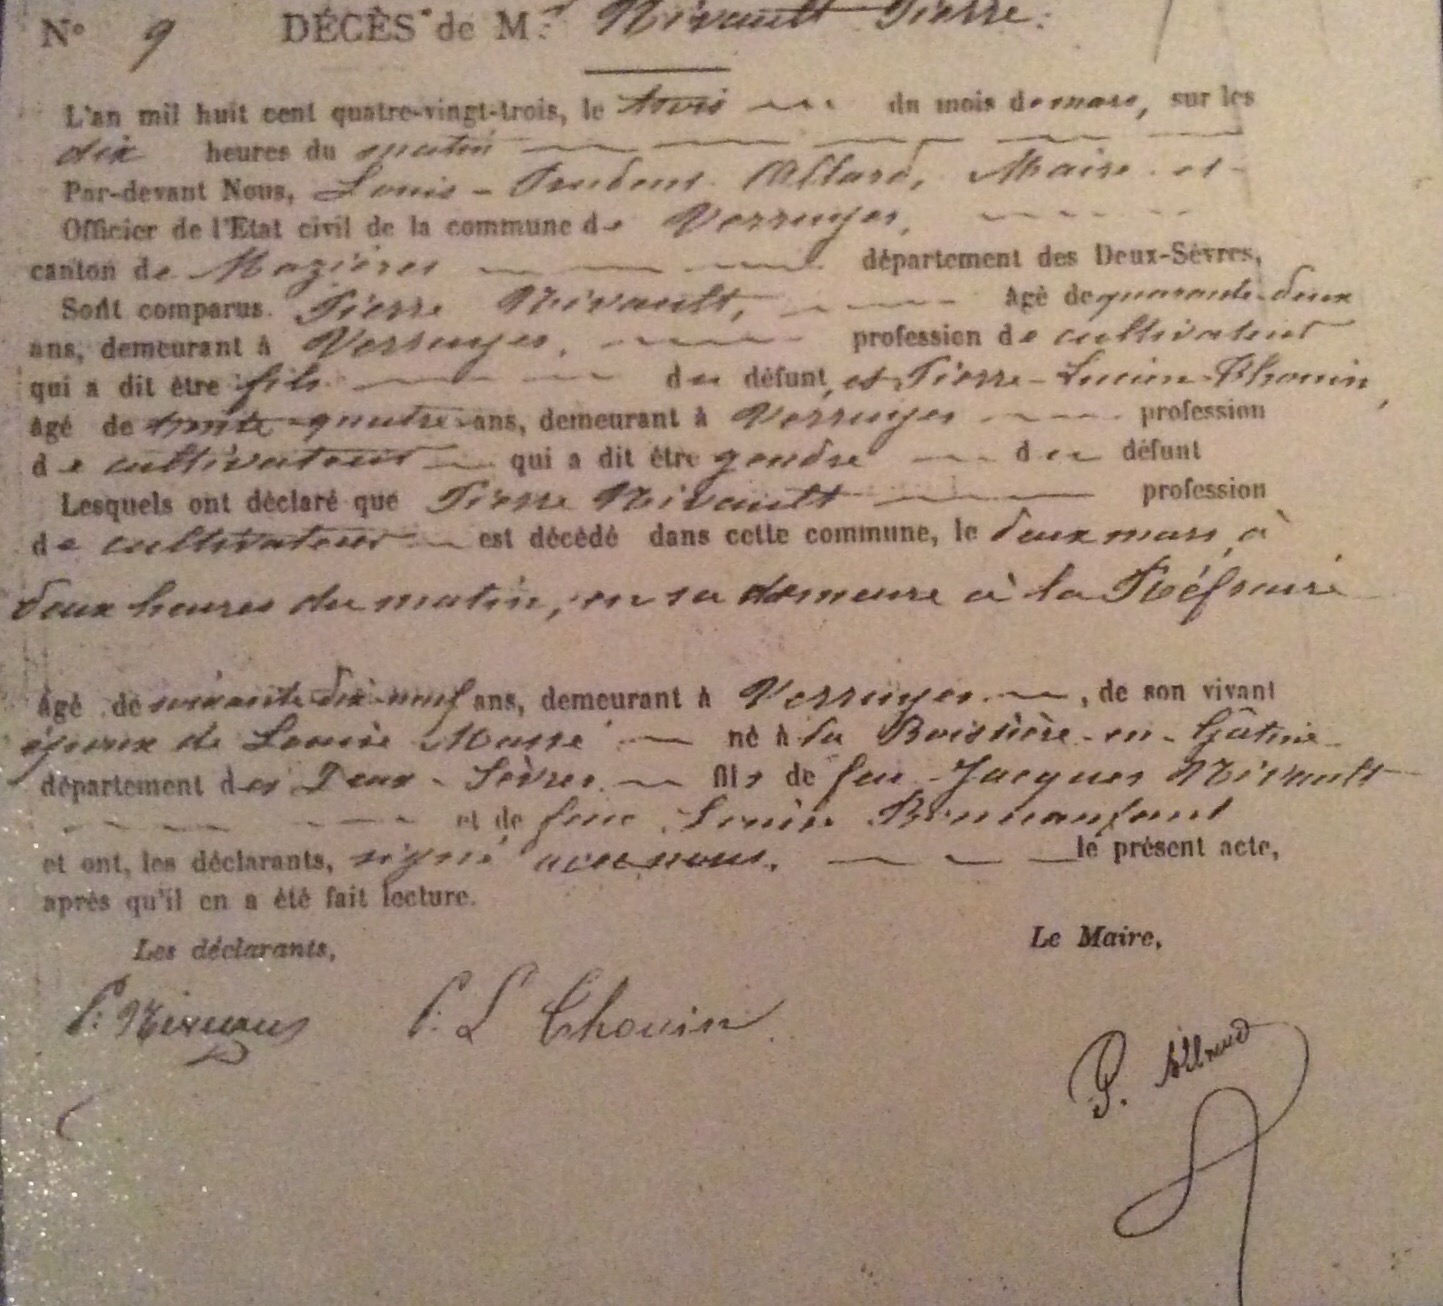 N° 9 DÉCÈS de M. Nivault Pierre.
L'an mil huit cent quatre-vingt-trois, le trois du mois de mars, sur les
dix heures du matin
Par-devant Nous, Louis-Prudent Allard, Maire et
Officier de l'Etat civil de la commune de Verruyes,
canton de Mazières département des Deux-Sèvres,
Sont comparus Pierre Nivault, âgé de quarante-deux
ans, demeurant à Verruyes, profession de cultivateur
qui a dit être fils du défunt, et Pierre-Lucien Chouin,
âgé de trente-quatre ans, demeurant à Verruyes profession
de cultivateur qui a dit être gendre du défunt
Lesquels ont déclaré que Pierre Nivault profession
de cultivateur est décédé dans cette commune, le deux mars, à
deux heures du matin, en sa demeure à la
âgé de soixante-dix-neuf ans, demeurant à Verruyes, de son vivant
époux de Louise Massé né à la Boissière-en-Gâtine
département des Deux-Sèvres fils de feu Jacques Nivault
et de feue Louise Bonnanfant
et ont, les déclarants, signé avec nous, le présent acte,
après qu'il en a été fait lecture.
Les déclarants, Le Maire,
P. P. L Chouin P. Allard